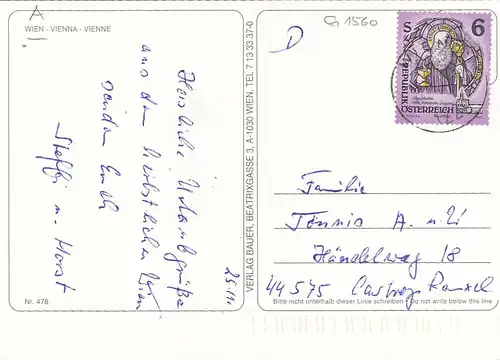 A
WIEN - VIENNA - VIENNE
25.11.
Herzliche Urlaubsgrüße
aus dem herbstlichen Wien
senden Euch
Steffi u. Horst
Nr. 478
VERLAG BAUER, BEATRIXGASSE 3, A-1030 WIEN, TEL 7 13 33 37-0
G 1560
D
S 6
REPUBLIK
ÖSTERREICH
Familie
Tönnis A. u. U
Händelweg 18
44575 Castrop Rauxel
Bitte nicht unterhalb dieser Linie schreiben - Do not write below this line